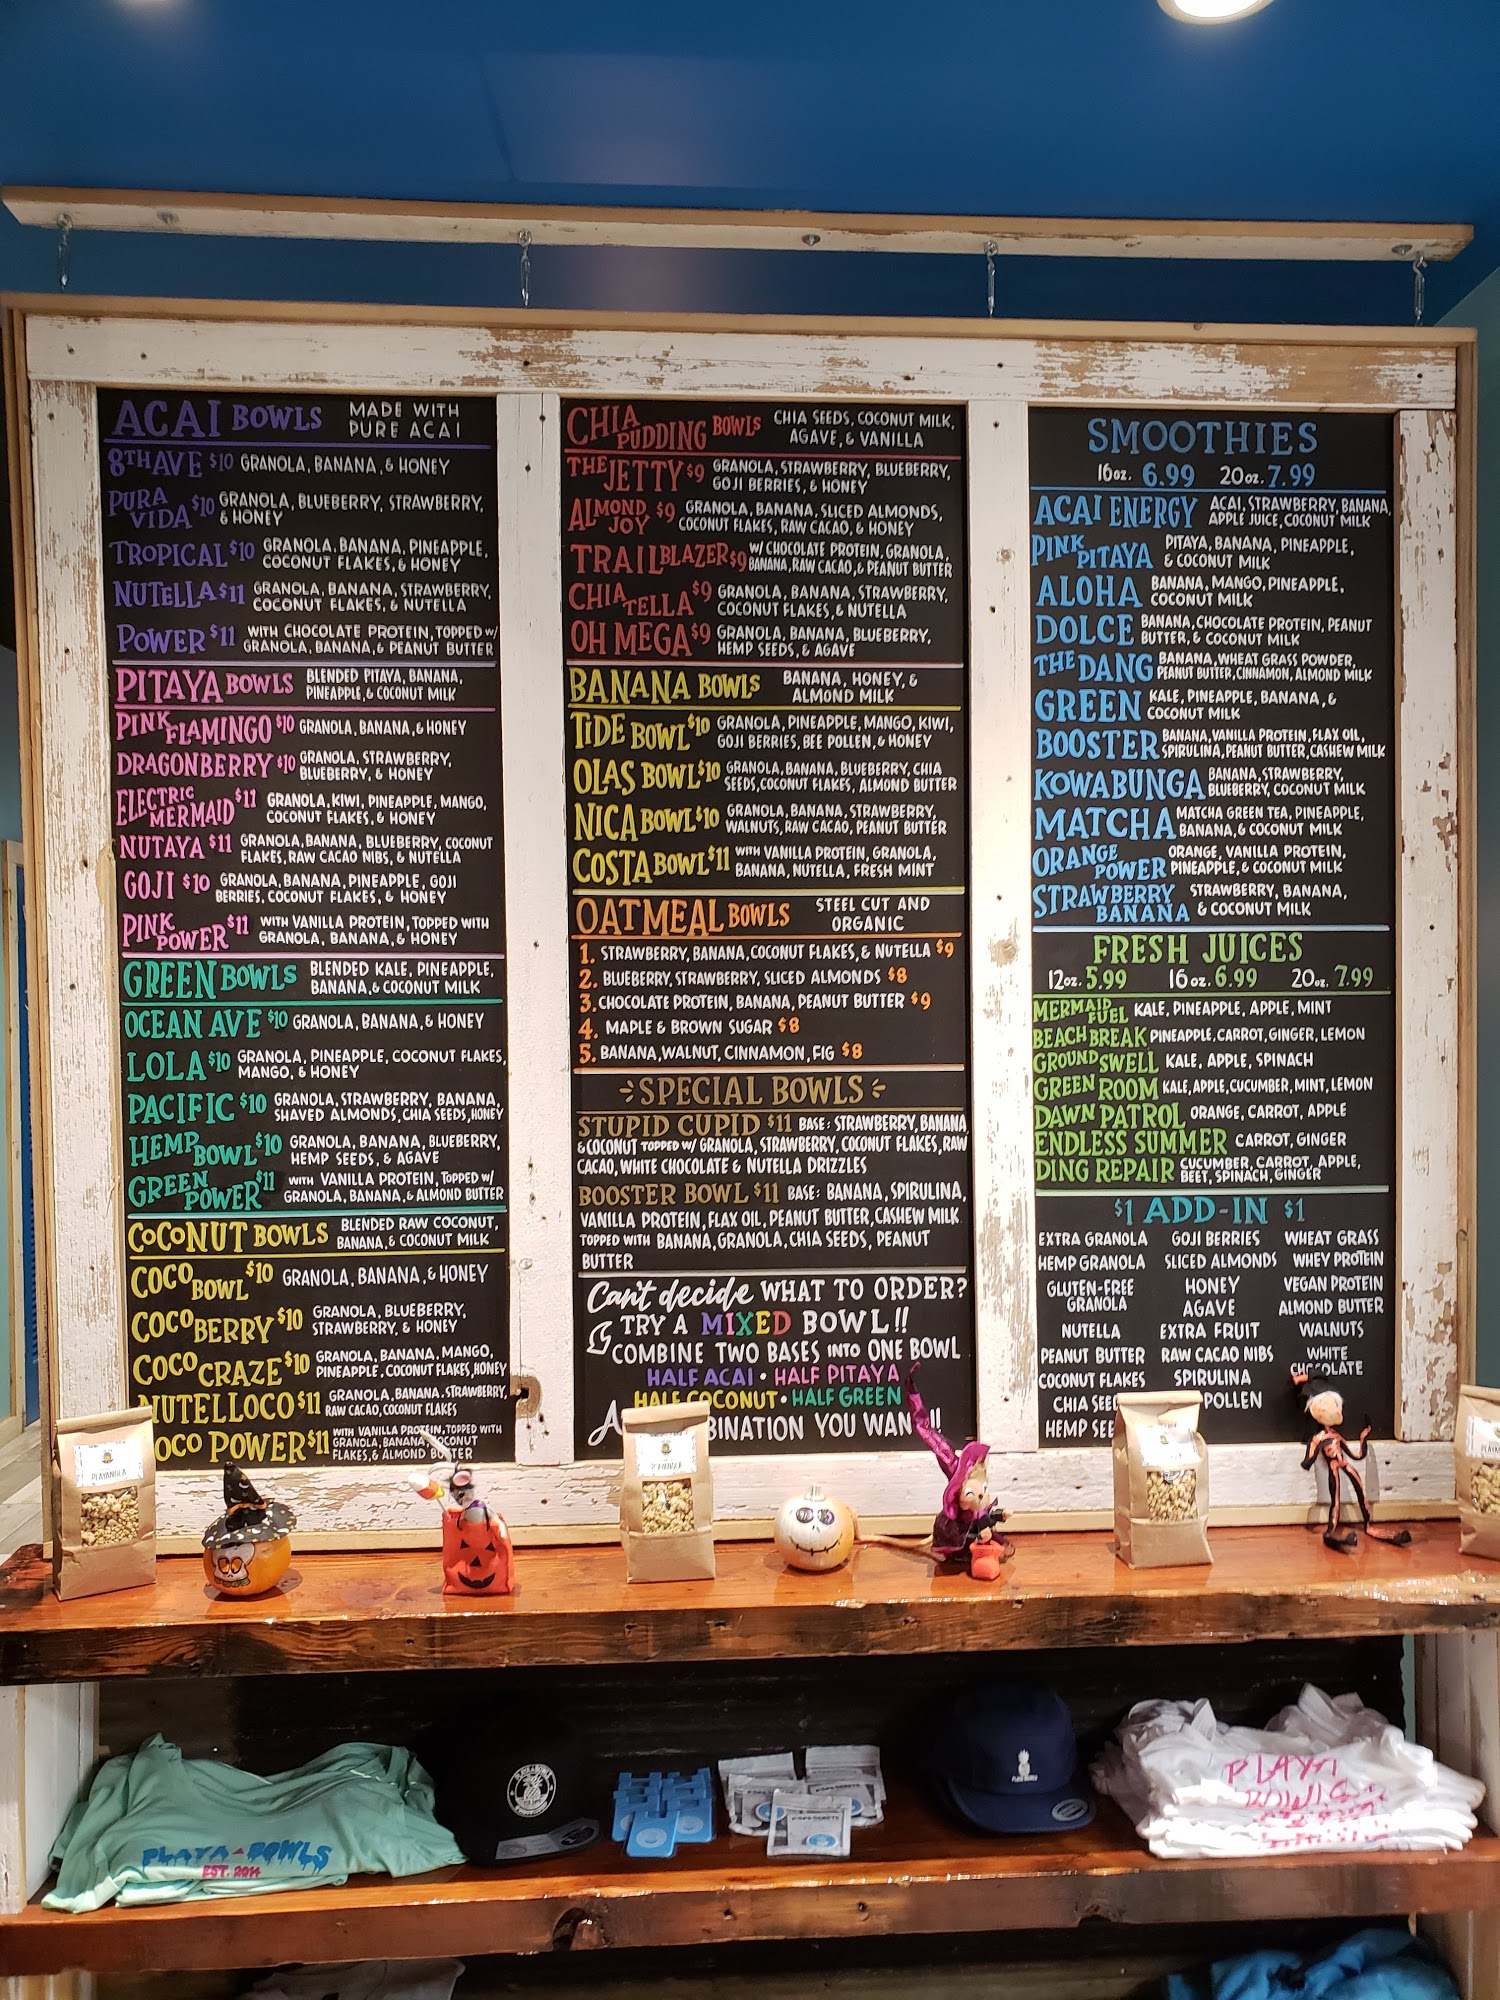 ACAI BOWLS MADE WITH
PURE ACAI
8TH AVE $10 GRANOLA, BANANA, & HONEY
PURA VIDA $10 GRANOLA, BLUEBERRY, STRAWBERRY,
& HONEY
TROPICAL $10 GRANOLA, BANANA, PINEAPPLE,
COCONUT FLAKES, & HONEY
NUTELLA $11 GRANOLA, BANANA, STRAWBERRY,
COCONUT FLAKES, & NUTELLA
POWER $11 WITH CHOCOLATE PROTEIN, TOPPED W/
GRANOLA, BANANA, & PEANUT BUTTER
PITAYA BOWLS BLENDED PITAYA, BANANA,
PINEAPPLE, & COCONUT MILK
PINK FLAMINGO $10 GRANOLA, BANANA, & HONEY
DRAGONBERRY $10 GRANOLA, STRAWBERRY,
BLUEBERRY, & HONEY
ELECTRIC MERMAID $11 GRANOLA, KIWI, PINEAPPLE, MANGO,
COCONUT FLAKES, & HONEY
NUTAYA $11 GRANOLA, BANANA, BLUEBERRY, COCONUT
FLAKES, RAW CACAO NIBS, & NUTELLA
GOJI $10 GRANOLA, BANANA, PINEAPPLE, GOJI
BERRIES, COCONUT FLAKES, & HONEY
PINK POWER $11 WITH VANILLA PROTEIN, TOPPED WITH
GRANOLA, BANANA, & HONEY
GREEN BOWLS BLENDED KALE, PINEAPPLE,
BANANA, & COCONUT MILK
OCEAN AVE $10 GRANOLA, BANANA, & HONEY
LOLA $10 GRANOLA, PINEAPPLE, COCONUT FLAKES,
MANGO, & HONEY
PACIFIC $10 GRANOLA, STRAWBERRY, BANANA,
SHAVED ALMONDS, CHIA SEEDS, HONEY
HEMP BOWL $10 GRANOLA, BANANA, BLUEBERRY,
HEMP SEEDS, & AGAVE
GREEN POWER $11 WITH VANILLA PROTEIN, TOPPED W/
GRANOLA, BANANA, & ALMOND BUTTER
COCONUT BOWLS BLENDED RAW COCONUT,
BANANA, & COCONUT MILK
COCO BOWL $10 GRANOLA, BANANA, & HONEY
COCO BERRY $10 GRANOLA, BLUEBERRY,
STRAWBERRY, & HONEY
COCO CRAZE $10 GRANOLA, BANANA, MANGO,
PINEAPPLE, COCONUT FLAKES, HONEY
NUTELLOCO $11 GRANOLA, BANANA, STRAWBERRY,
RAW CACAO, COCONUT FLAKES
COCO POWER $11 WITH VANILLA PROTEIN, TOPPED WITH
GRANOLA, BANANA, COCONUT
FLAKES, & ALMOND BUTTER
CHIA PUDDING BOWLS CHIA SEEDS, COCONUT MILK,
AGAVE, & VANILLA
THE JETTY $9 GRANOLA, STRAWBERRY, BLUEBERRY,
GOJI BERRIES, & HONEY
ALMOND JOY $9 GRANOLA, BANANA, SLICED ALMONDS,
COCONUT FLAKES, RAW CACAO, & HONEY
TRAILBLAZER $9 W/ CHOCOLATE PROTEIN, GRANOLA,
BANANA, RAW CACAO, & PEANUT BUTTER
CHIA TELLA $9 GRANOLA, BANANA, STRAWBERRY,
COCONUT FLAKES, & NUTELLA
OH MEGA $9 GRANOLA, BANANA, BLUEBERRY,
HEMP SEEDS, & AGAVE
BANANA BOWLS BANANA, HONEY, &
ALMOND MILK
TIDE BOWL $10 GRANOLA, PINEAPPLE, MANGO, KIWI,
GOJI BERRIES, BEE POLLEN, & HONEY
OLAS BOWL $10 GRANOLA, BANANA, BLUEBERRY, CHIA
SEEDS, COCONUT FLAKES, ALMOND BUTTER
NICA BOWL $10 GRANOLA, BANANA, STRAWBERRY,
WALNUTS, RAW CACAO, PEANUT BUTTER
COSTA BOWL $11 WITH VANILLA PROTEIN, GRANOLA,
BANANA, NUTELLA, FRESH MINT
OATMEAL BOWLS STEEL CUT AND
ORGANIC
1. STRAWBERRY, BANANA, COCONUT FLAKES, & NUTELLA $9
2. BLUEBERRY, STRAWBERRY, SLICED ALMONDS $8
3. CHOCOLATE PROTEIN, BANANA, PEANUT BUTTER $9
4. MAPLE & BROWN SUGAR $8
5. BANANA, WALNUT, CINNAMON, FIG $8
SPECIAL BOWLS
STUPID CUPID $11 BASE: STRAWBERRY, BANANA,
& COCONUT TOPPED W/ GRANOLA, STRAWBERRY, COCONUT FLAKES, RAW
CACAO, WHITE CHOCOLATE & NUTELLA DRIZZLES
BOOSTER BOWL $11 BASE: BANANA, SPIRULINA,
VANILLA PROTEIN, FLAX OIL, PEANUT BUTTER, CASHEW MILK
TOPPED WITH BANANA, GRANOLA, CHIA SEEDS, PEANUT
BUTTER
Can't decide WHAT TO ORDER?
TRY A MIXED BOWL!!
COMBINE TWO BASES INTO ONE BOWL
HALF ACAI • HALF PITAYA
HALF COCONUT • HALF GREEN
A BINATION YOU WAN !!
SMOOTHIES
16oz. 6.99 20oz. 7.99
ACAI ENERGY ACAI, STRAWBERRY, BANANA,
APPLE JUICE, COCONUT MILK
PINK PITAYA PITAYA, BANANA, PINEAPPLE,
& COCONUT MILK
ALOHA BANANA, MANGO, PINEAPPLE,
COCONUT MILK
DOLCE BANANA, CHOCOLATE PROTEIN, PEANUT
BUTTER, & COCONUT MILK
THE DANG BANANA, WHEAT GRASS POWDER,
PEANUT BUTTER, CINNAMON, ALMOND MILK
GREEN KALE, PINEAPPLE, BANANA, &
COCONUT MILK
BOOSTER BANANA, VANILLA PROTEIN, FLAX OIL,
SPIRULINA, PEANUT BUTTER, CASHEW MILK
KOWABUNGA BANANA, STRAWBERRY,
BLUEBERRY, COCONUT MILK
MATCHA MATCHA GREEN TEA, PINEAPPLE,
BANANA, & COCONUT MILK
ORANGE POWER ORANGE, VANILLA PROTEIN,
PINEAPPLE, & COCONUT MILK
STRAWBERRY BANANA STRAWBERRY, BANANA,
& COCONUT MILK
FRESH JUICES
12oz. 5.99 16oz. 6.99 20oz. 7.99
MERMAID FUEL KALE, PINEAPPLE, APPLE, MINT
BEACH BREAK PINEAPPLE, CARROT, GINGER, LEMON
GROUND SWELL KALE, APPLE, SPINACH
GREEN ROOM KALE, APPLE, CUCUMBER, MINT, LEMON
DAWN PATROL ORANGE, CARROT, APPLE
ENDLESS SUMMER CARROT, GINGER
DING REPAIR CUCUMBER, CARROT, APPLE,
BEET, SPINACH, GINGER
$1 ADD-IN $1
EXTRA GRANOLA GOJI BERRIES WHEAT GRASS
HEMP GRANOLA SLICED ALMONDS WHEY PROTEIN
GLUTEN-FREE GRANOLA HONEY VEGAN PROTEIN
AGAVE ALMOND BUTTER
NUTELLA EXTRA FRUIT WALNUTS
PEANUT BUTTER RAW CACAO NIBS WHITE CHOCOLATE
COCONUT FLAKES SPIRULINA
CHIA SEE POLLEN
HEMP SEE
PLAYANOLA
PLAYA BOWLS
EST. 2014
PLAYA
BOWLS